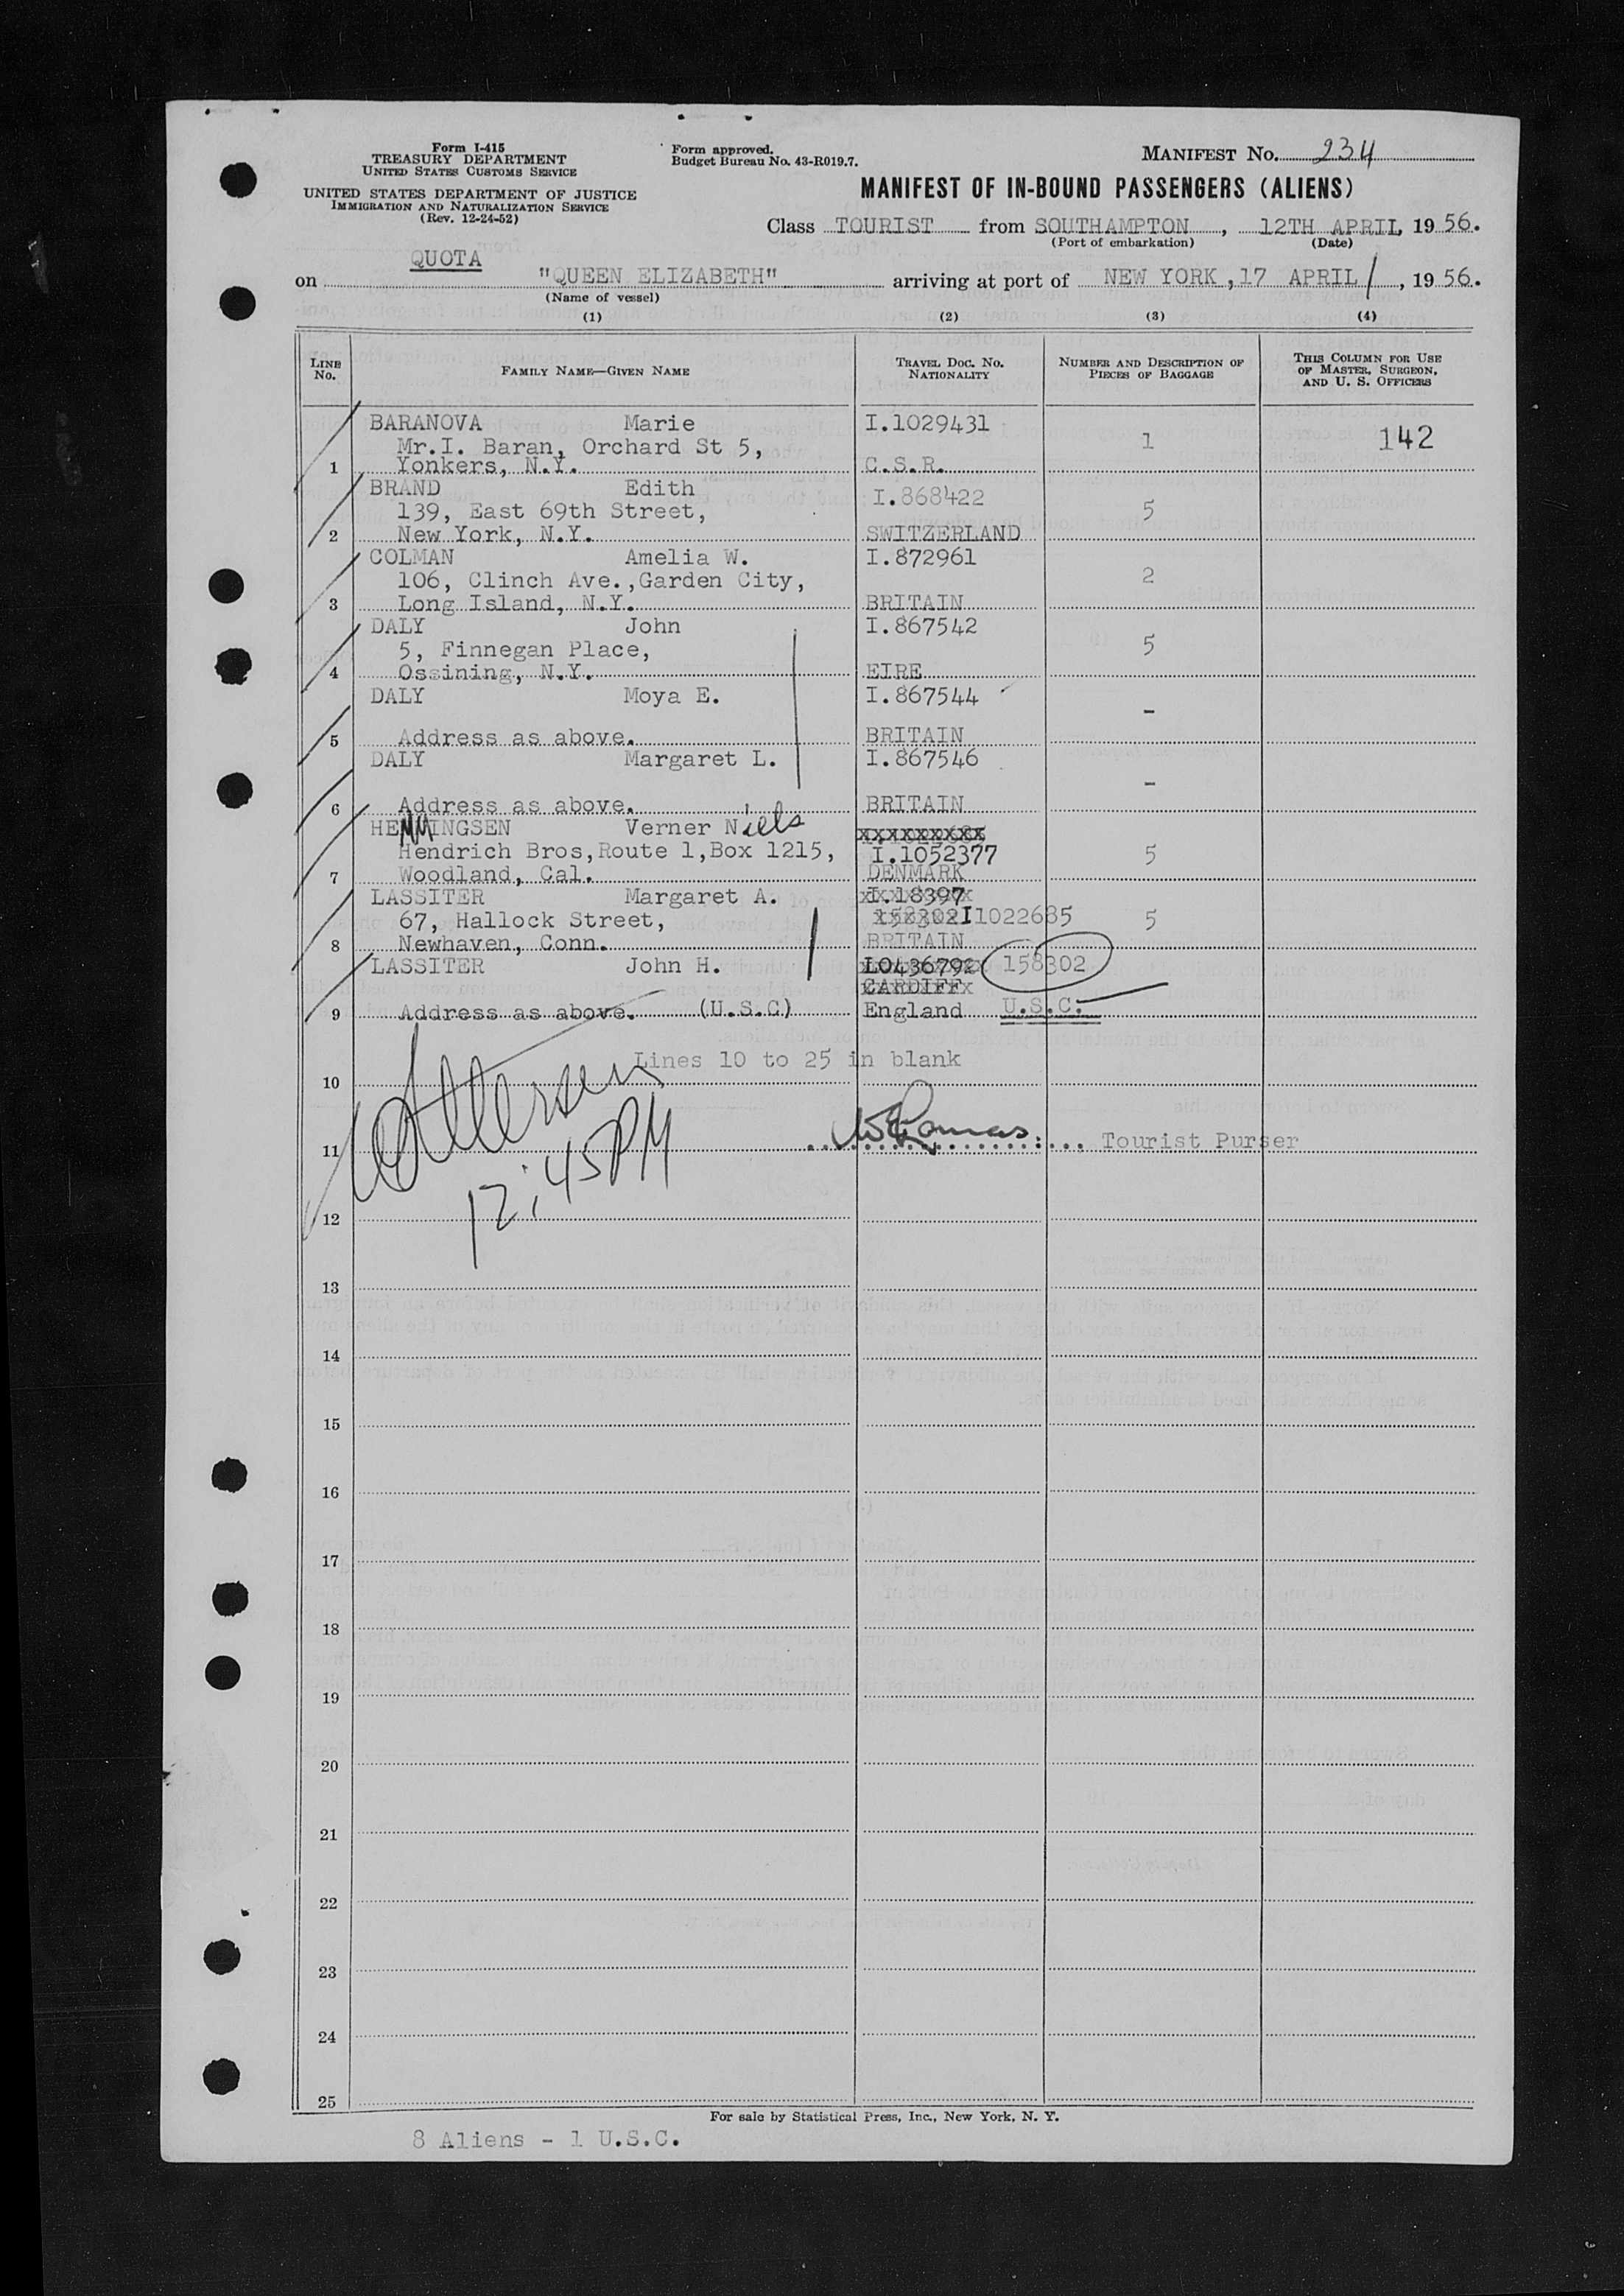 Form I-415
TREASURY DEPARTMENT
UNITED STATES CUSTOMS SERVICE
UNITED STATES DEPARTMENT OF JUSTICE
IMMIGRATION AND NATURALIZATION SERVICE
(Rev. 12-24-52)
Form approved.
Budget Bureau No. 43-R019.7.
MANIFEST No. 234
MANIFEST OF IN-BOUND PASSENGERS (ALIENS)
Class TOURIST from SOUTHAMPTON, 12TH APRIL, 19 56.
(Port of embarkation) (Date)
QUOTA
on "QUEEN ELIZABETH" arriving at port of NEW YORK, 17 APRIL, 19 56.
(Name of vessel)
(1) (2) (3) (4)
LINE No. FAMILY NAME—GIVEN NAME TRAVEL DOC. NO. NATIONALITY NUMBER AND DESCRIPTION OF PIECES OF BAGGAGE THIS COLUMN FOR USE OF MASTER, SURGEON, AND U. S. OFFICERS
BARANOVA Marie I.1029431
Mr.I. Baran, Orchard St 5, 1 142
1 Yonkers, N.Y. C.S.R.
BRAND Edith I.868422
139, East 69th Street, 5
2 New York, N.Y. SWITZERLAND
COLMAN Amelia W. I.872961
106, Clinch Ave.,Garden City, 2
3 Long Island, N.Y. BRITAIN
DALY John I.867542
5, Finnegan Place, 5
4 Ossining, N.Y. EIRE
DALY Moya E. I.867544
-
5 Address as above. BRITAIN
DALY Margaret L. I.867546
-
6 Address as above. BRITAIN
HEMMINGSEN Verner Niels
Hendrich Bros,Route 1,Box 1215, I.1052377 5
7 Woodland, Cal. DENMARK
LASSITER Margaret A. I.18397
67, Hallock Street, 158302 I1022685 5
8 Newhaven, Conn. BRITAIN
LASSITER John H. L0436792 158302
CARDIFF
9 Address as above. (U.S.C) England U.S.C.
Lines 10 to 25 in blank
10
11 Tourist Purser
12:45PM
12
13
14
15
16
17
18
19
20
21
22
23
24
25
For sale by Statistical Press, Inc., New York, N. Y.
8 Aliens - 1 U.S.C.